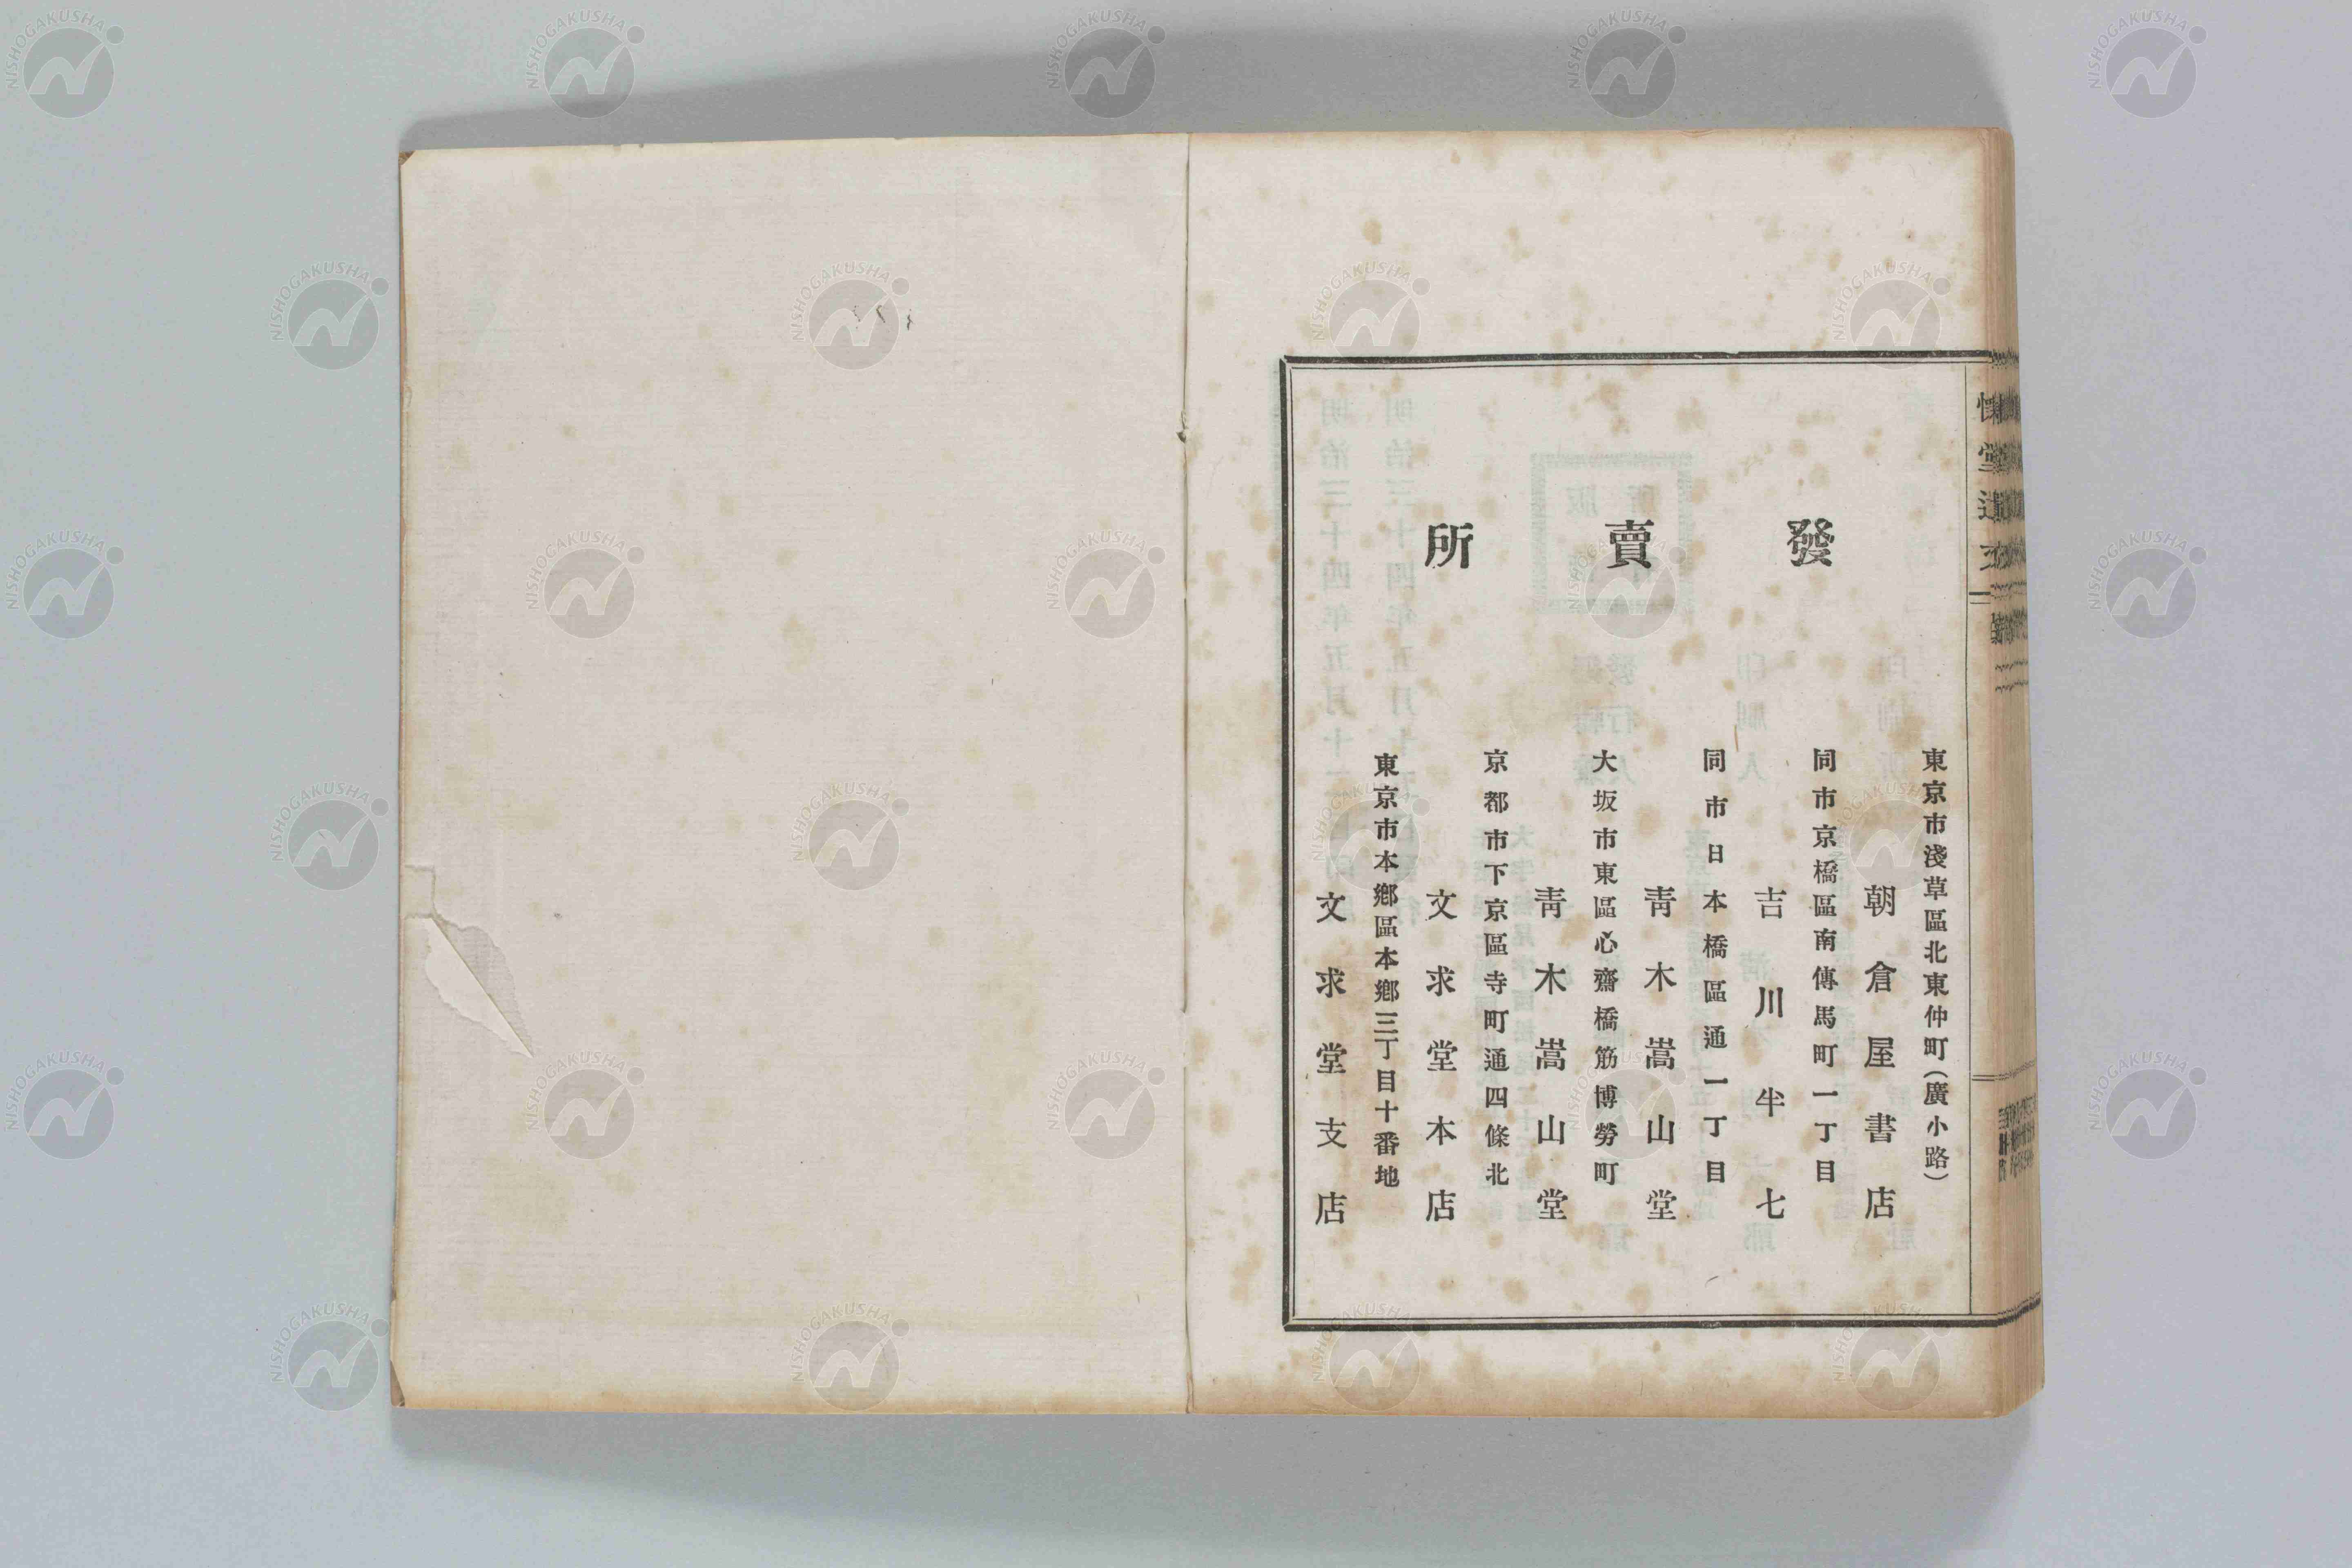 發賣所
東京市淺草區北東仲町(廣小路)
朝倉屋書店
同市京橋區南傳馬町一丁目
吉川半七
同市日本橋區通一丁目
靑木嵩山堂
大坂市東區心齋橋筋博勞町
靑木嵩山堂
京都市下京區寺町通四條北
文求堂本店
東京市本鄕區本鄕三丁目十番地
文求堂支店
NISHOGAKUSHA